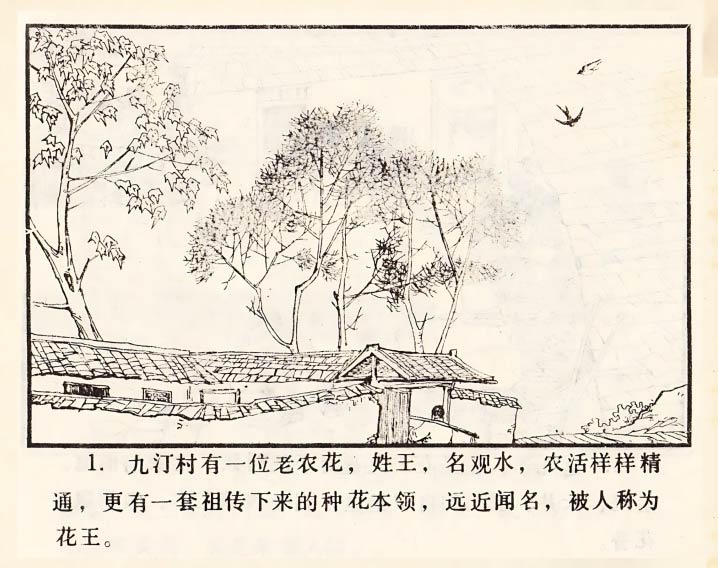 1. 九汀村有一位老农花，姓王，名观水，农活样样精
通，更有一套祖传下来的种花本领，远近闻名，被人称为
花王。